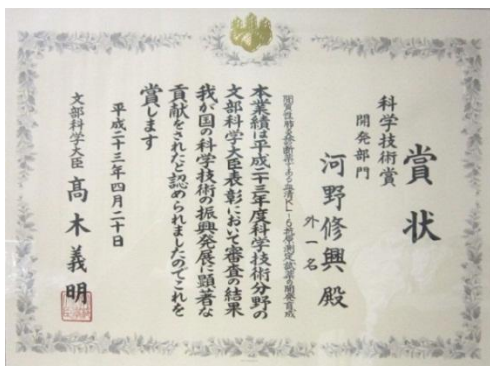 賞状
科学技術賞
開発部門
河野修興 殿
外一名
間質性肺炎診断薬である血清KL-6抗原測定試薬の開発育成
本業績は平成二十三年度科学技術分野の
文部科学大臣表彰において審査の結果
我が国の科学技術の振興発展に顕著な
貢献をされたと認められましたのでこれを
賞します
平成二十三年四月二十日
文部科学大臣 髙木義明